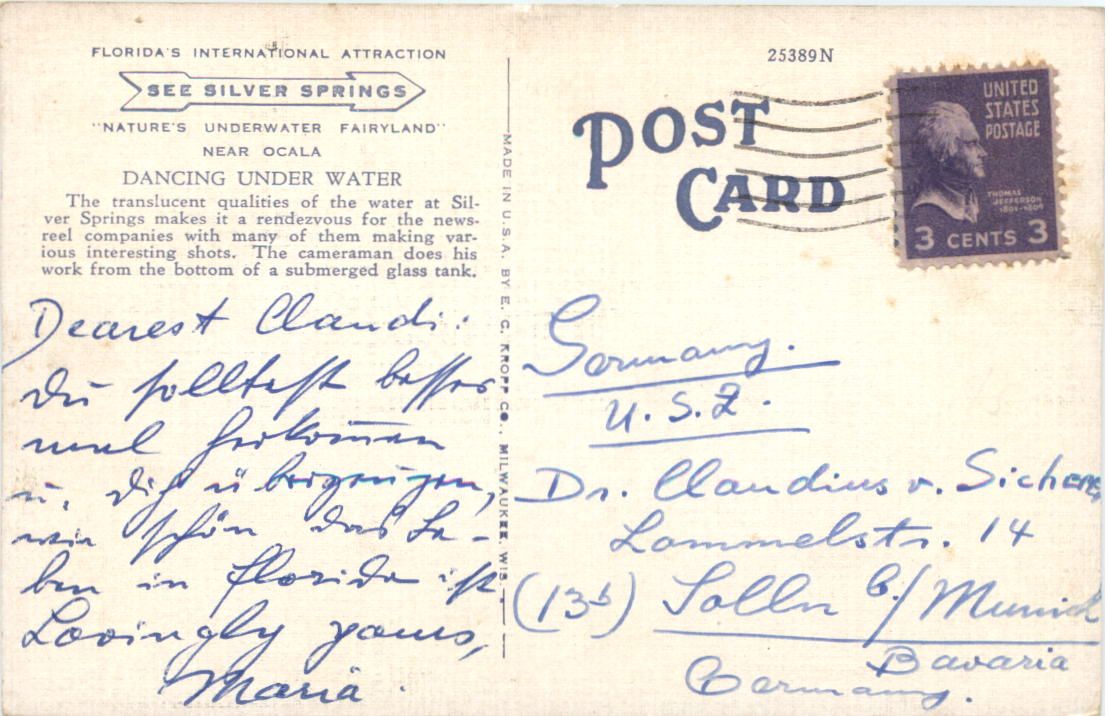 FLORIDA'S INTERNATIONAL ATTRACTION
SEE SILVER SPRINGS
"NATURE'S UNDERWATER FAIRYLAND"
NEAR OCALA
DANCING UNDER WATER
The translucent qualities of the water at Sil-
ver Springs makes it a rendezvous for the news-
reel companies with many of them making var-
ious interesting shots. The cameraman does his
work from the bottom of a submerged glass tank.
Dearest Claudi:
Du solltest besser
mal herkommen
u. dich überzeugen,
wie schön das Le-
ben in Florida ist
Lovingly yours,
Maria.
MADE IN U.S.A. BY E. C. KROPP CO., MILWAUKEE, WIS.
25389N
POST
CARD
UNITED
STATES
POSTAGE
THOMAS
JEFFERSON
1801-1809
3 CENTS 3
Germany.
U.S.Z.
Dr. Claudius v. Sicherer
Lommelstr. 14
(13b) Solln b./Munich
Bavaria
Germany.